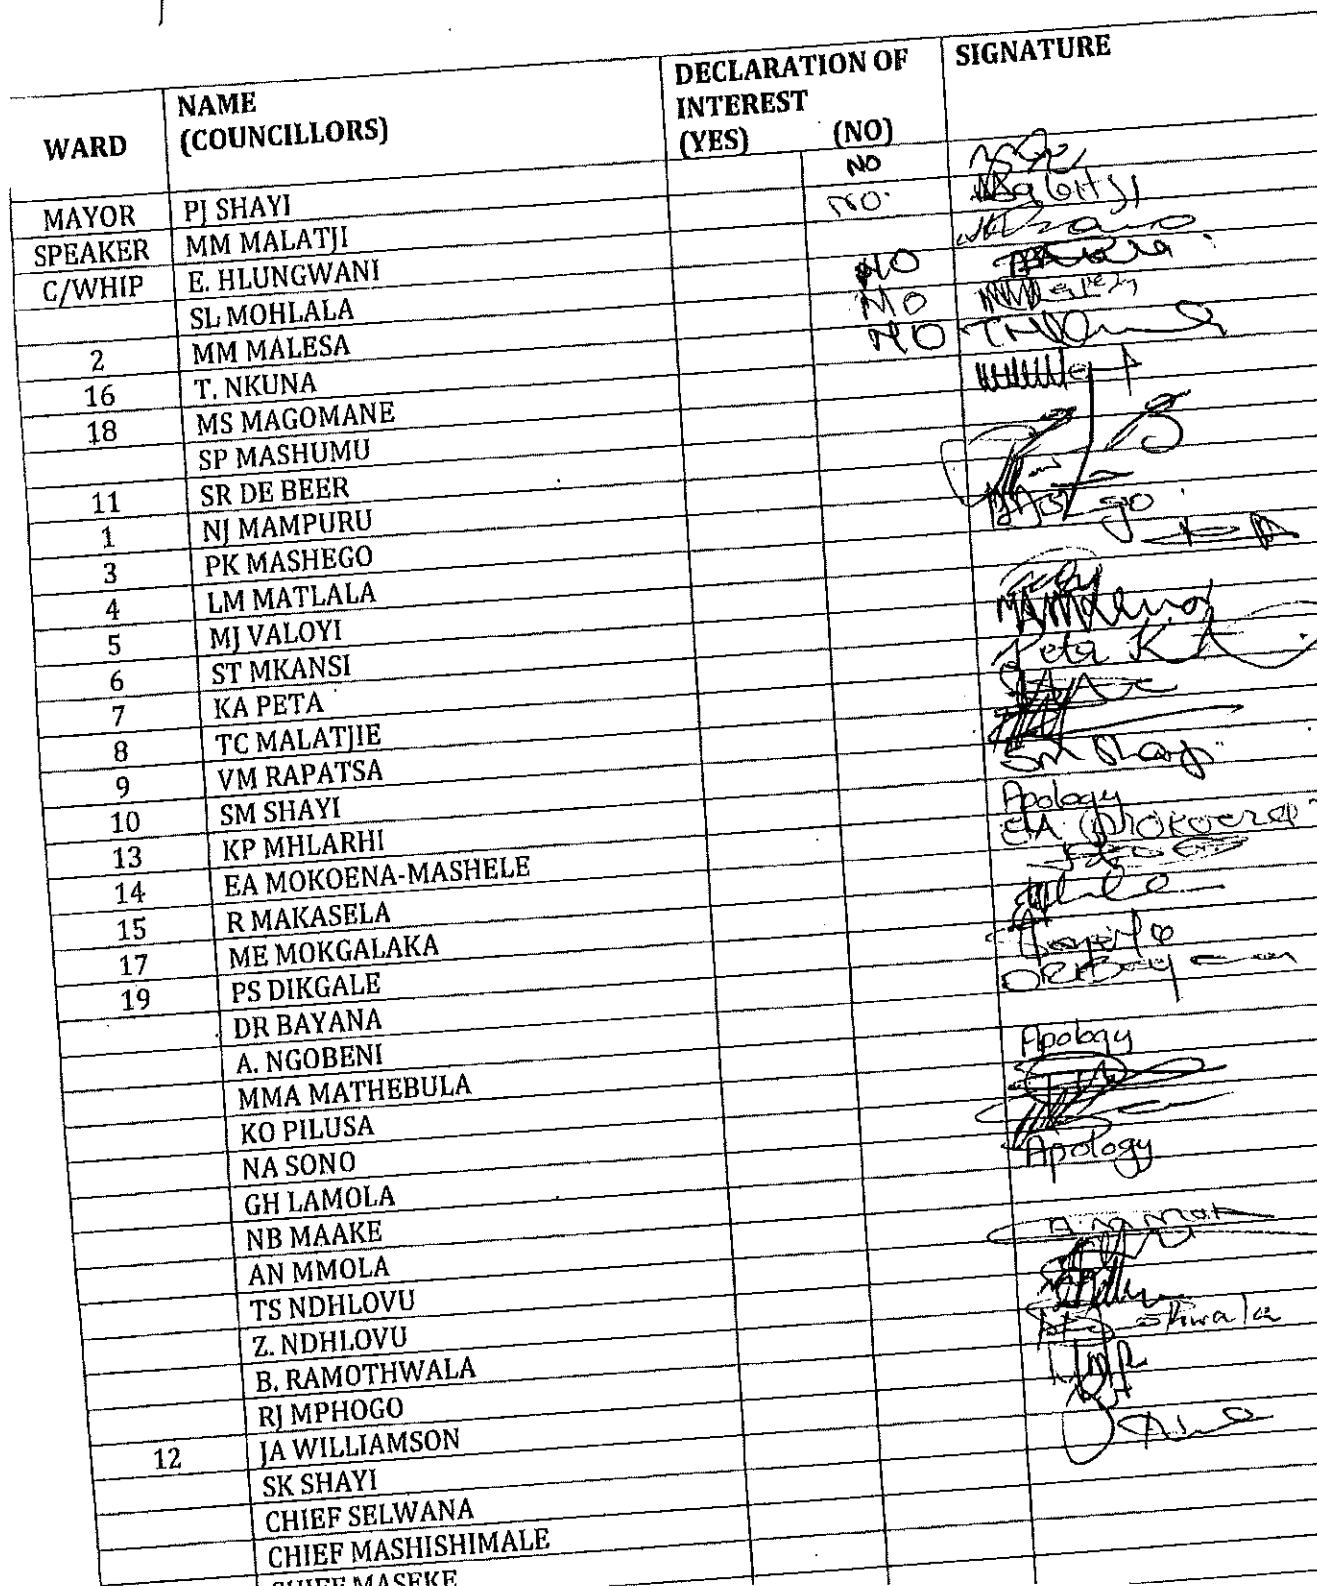 WARD NAME (COUNCILLORS) DECLARATION OF INTEREST (YES) (NO) SIGNATURE
MAYOR PJ SHAYI NO
SPEAKER MM MALATJI NO.
C/WHIP E. HLUNGWANI
SL MOHLALA NO
2 MM MALESA NO
16 T. NKUNA NO
18 MS MAGOMANE
SP MASHUMU
11 SR DE BEER
1 NJ MAMPURU
3 PK MASHEGO
4 LM MATLALA
5 MJ VALOYI
6 ST MKANSI
7 KA PETA Peta K
8 TC MALATJIE
9 VM RAPATSA
10 SM SHAYI SM
13 KP MHLARHI Apology
14 EA MOKOENA-MASHELE EA Mokoena
15 R MAKASELA
17 ME MOKGALAKA
19 PS DIKGALE
DR BAYANA
A. NGOBENI
MMA MATHEBULA Apology
KO PILUSA
NA SONO
GH LAMOLA Apology
NB MAAKE
AN MMOLA
TS NDHLOVU
Z. NDHLOVU
B. RAMOTHWALA
RJ MPHOGO
12 JA WILLIAMSON
SK SHAYI
CHIEF SELWANA
CHIEF MASHISHIMALE
CHIEF MASEKE